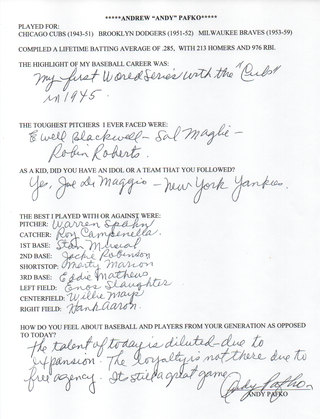 *****ANDREW "ANDY" PAFKO*****
PLAYED FOR:
CHICAGO CUBS (1943-51) BROOKLYN DODGERS (1951-52) MILWAUKEE BRAVES (1953-59)
COMPILED A LIFETIME BATTING AVERAGE OF .285, WITH 213 HOMERS AND 976 RBI.
THE HIGHLIGHT OF MY BASEBALL CAREER WAS:
My first World Series with the "Cubs"
in 1945.
THE TOUGHEST PITCHERS I EVER FACED WERE:
Ewell Blackwell — Sal Maglie —
Robin Roberts.
AS A KID, DID YOU HAVE AN IDOL OR A TEAM THAT YOU FOLLOWED?
Yes, Joe Di Maggio — New York Yankees.
THE BEST I PLAYED WITH OR AGAINST WERE:
PITCHER: Warren Spahn
CATCHER: Roy Campenella.
1ST BASE: Stan Musial
2ND BASE: Jackie Robinson
SHORTSTOP: Marty Marion
3RD BASE: Eddie Mathews
LEFT FIELD: Enos Slaughter
CENTERFIELD: Willie Mays
RIGHT FIELD: Hank Aaron.
HOW DO YOU FEEL ABOUT BASEBALL AND PLAYERS FROM YOUR GENERATION AS OPPOSED
TO TODAY?
The talent of today is diluted due to
expansion. The loyalty is not there due to
free agency. It still a great game.
Andy Pafko
ANDY PAFKO